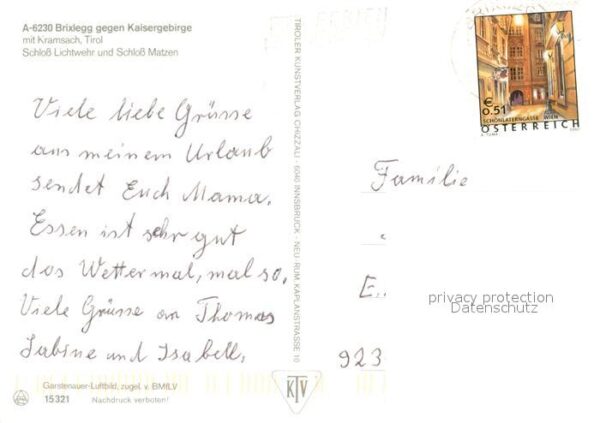 A-6230 Brixlegg gegen Kaisergebirge
mit Kramsach, Tirol
Schloß Lichtwehr und Schloß Matzen
Viele liebe Grüsse
aus meinem Urlaub
sendet Euch Mama.
Essen ist sehr gut
das Wetter mal, mal so.
Viele Grüsse an Thomas
Sabine und Isabell.
Garstenauer-Luftbild, zugel. v. BMfLV
15321 Nachdruck verboten!
TIROLER KUNSTVERLAG CHIZZALI · 6040 INNSBRUCK - NEU RUM, KAPLANSTRASSE 10
KTV
€ 0.51
SCHÖNLATERNGASSE, WIEN
ÖSTERREICH
Familie
E.
923
privacy protection
Datenschutz